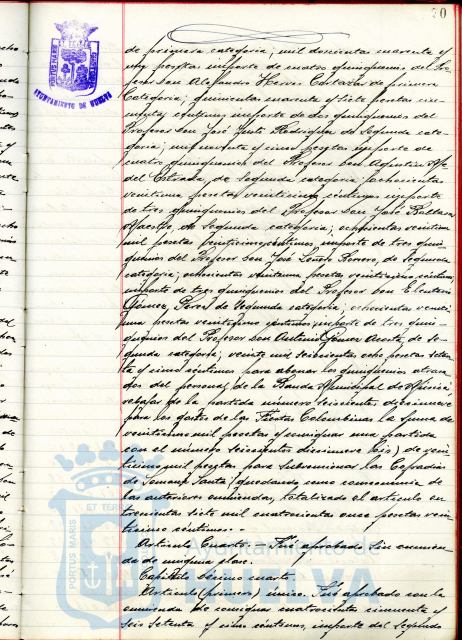 30
PORTUS MARIS
AYUNTAMIENTO DE HUELVA
de primera categoría; mil doscientas noventa y
una pesetas importe de cuatro quinquenios del Pro-
fesor Don Hervás Cortázar de primera
Categoría; quinientas cuarenta y siete pesetas cin-
cuenta céntimos importe de dos quinquenios del
Profesor Don José Rodríguez de Segunda cate-
goría; mil noventa y cinco pesetas importe de
cuatro quinquenios del Profesor Don Agustín
del Estrada, de Segunda categoría; ochocientas
veintiuna pesetas veinticinco céntimos importe
de tres quinquenios del Profesor Don José
Maestro, de Segunda categoría; ochocientas veintiun
mil pesetas veinticinco céntimos, importe de tres quin-
quenios del Profesor Don José Romero, de Segunda
categoría; ochocientas veintiuna pesetas veinticinco céntimos
importe de tres quinquenios del Profesor Don
Gómez de Segunda categoría; ochocientas veinti
una pesetas veinticinco céntimos, importe de tres quin-
quenios del Profesor Don Antonio Gómez Acosta, de Se-
gunda categoría; veinte mil seiscientas ocho pesetas seten-
ta y cinco céntimos para abonar los quinquenios atrasa-
dos del personal de la Banda Municipal de Música;
rebajar de la partida número seiscientos diecinueve
para los gastos de las Fiestas Colombinas la suma de
veinticinco mil pesetas y consignar una partida
con el número seiscientos diecinueve bis) de vein-
ticinco mil pesetas para subvencionar las Cofradías
de Semana Santa, quedando como consecuencia de
las anteriores enmiendas, totalizado el artículo en
trescientas siete mil cuatrocientas once pesetas vein-
ticinco céntimos.-
Artículo Cuarto.- Fué aprobado sin enmien-
da de ninguna clase.
Capítulo décimo cuarto.
Artículo (primero) único. Fué aprobado con la
enmienda de consignar cuatrocientas cincuenta y
seis setenta y cinco céntimos, importe del segundo
ET TERR
PORTUS MARIS
Ayuntamiento de
HUELVA